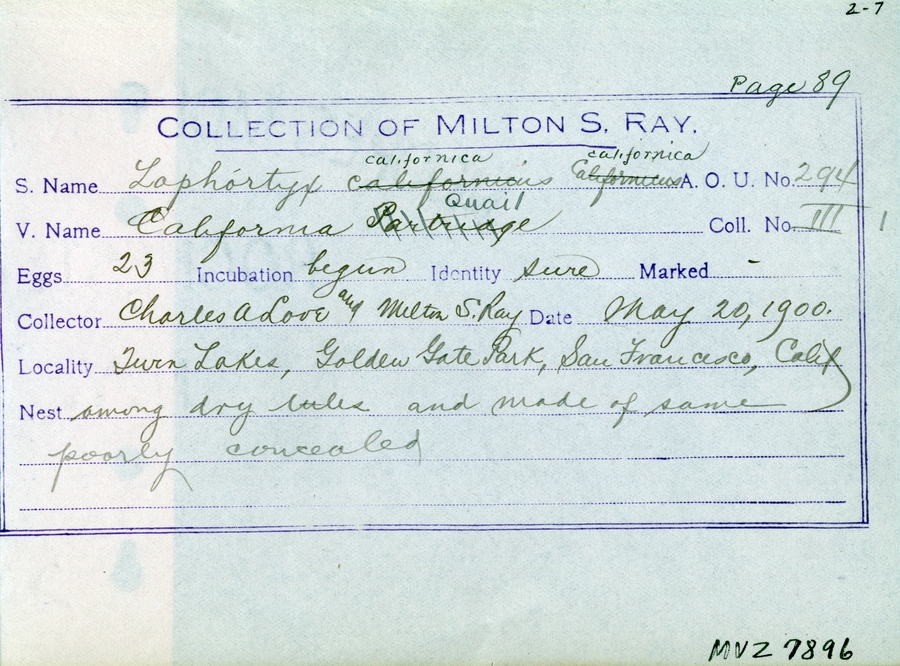 2-7
Page 89
COLLECTION OF MILTON S. RAY.
californica californica
S. Name Lophortyx californicus Californicus A. O. U. No. 294
Quail
V. Name California Partridge Coll. No. III 1
Eggs 23 Incubation begun Identity sure Marked -
Collector Charles A Love and Milton S. Ray Date May 20, 1900.
Locality Twin Lakes, Golden Gate Park, San Francisco, Calif
Nest among dry tules and made of same
poorly concealed
MVZ 7896